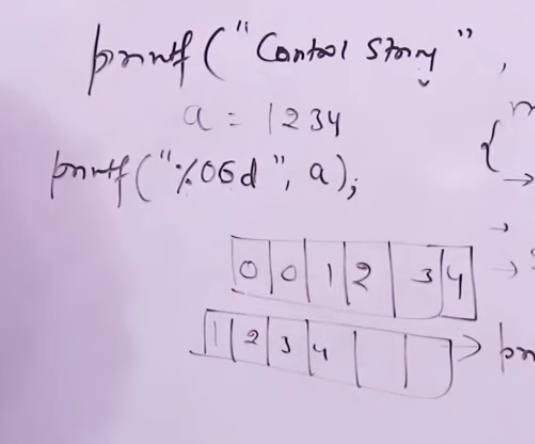 printf("Control String",
a = 1234
{
printf("%06d", a);
0 0 1 2 3 4
1 2 3 4